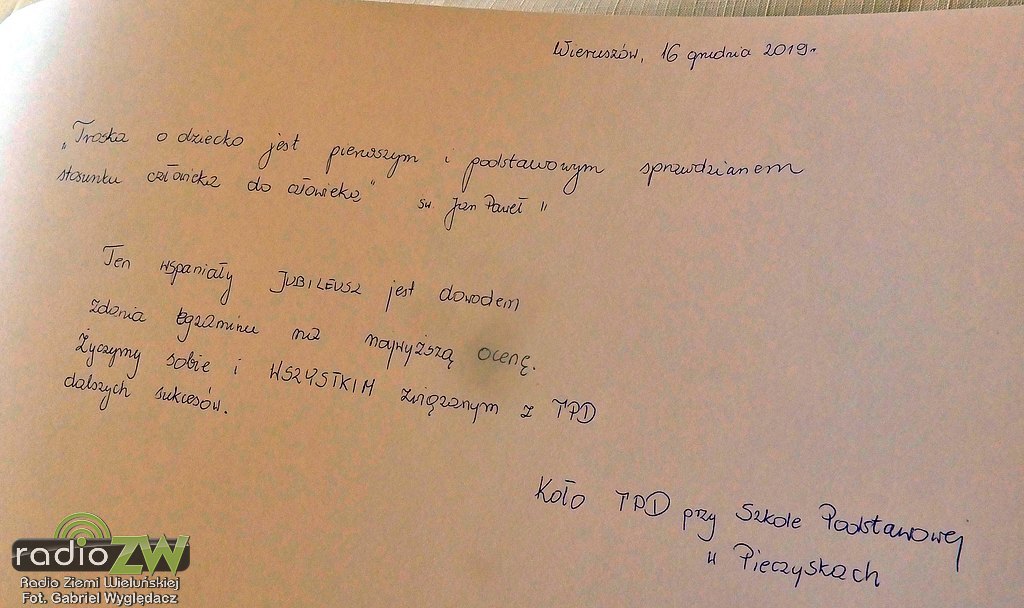 Wieruszów, 16 grudnia 2019r
„Troska o dziecko jest pierwszym i podstawowym sprawdzianem
stosunku człowieka do człowieka" św. Jan Paweł II
Ten wspaniały JUBILEUSZ jest dowodem
zdania egzaminu na najwyższą ocenę.
Życzymy sobie i WSZYSTKIM związanym z TPD
dalszych sukcesów.
Koło TPD przy Szkole Podstawowej
w Pieczyskach
radio ZW
Radio Ziemi Wieluńskiej
Fot. Gabriel Wyględacz